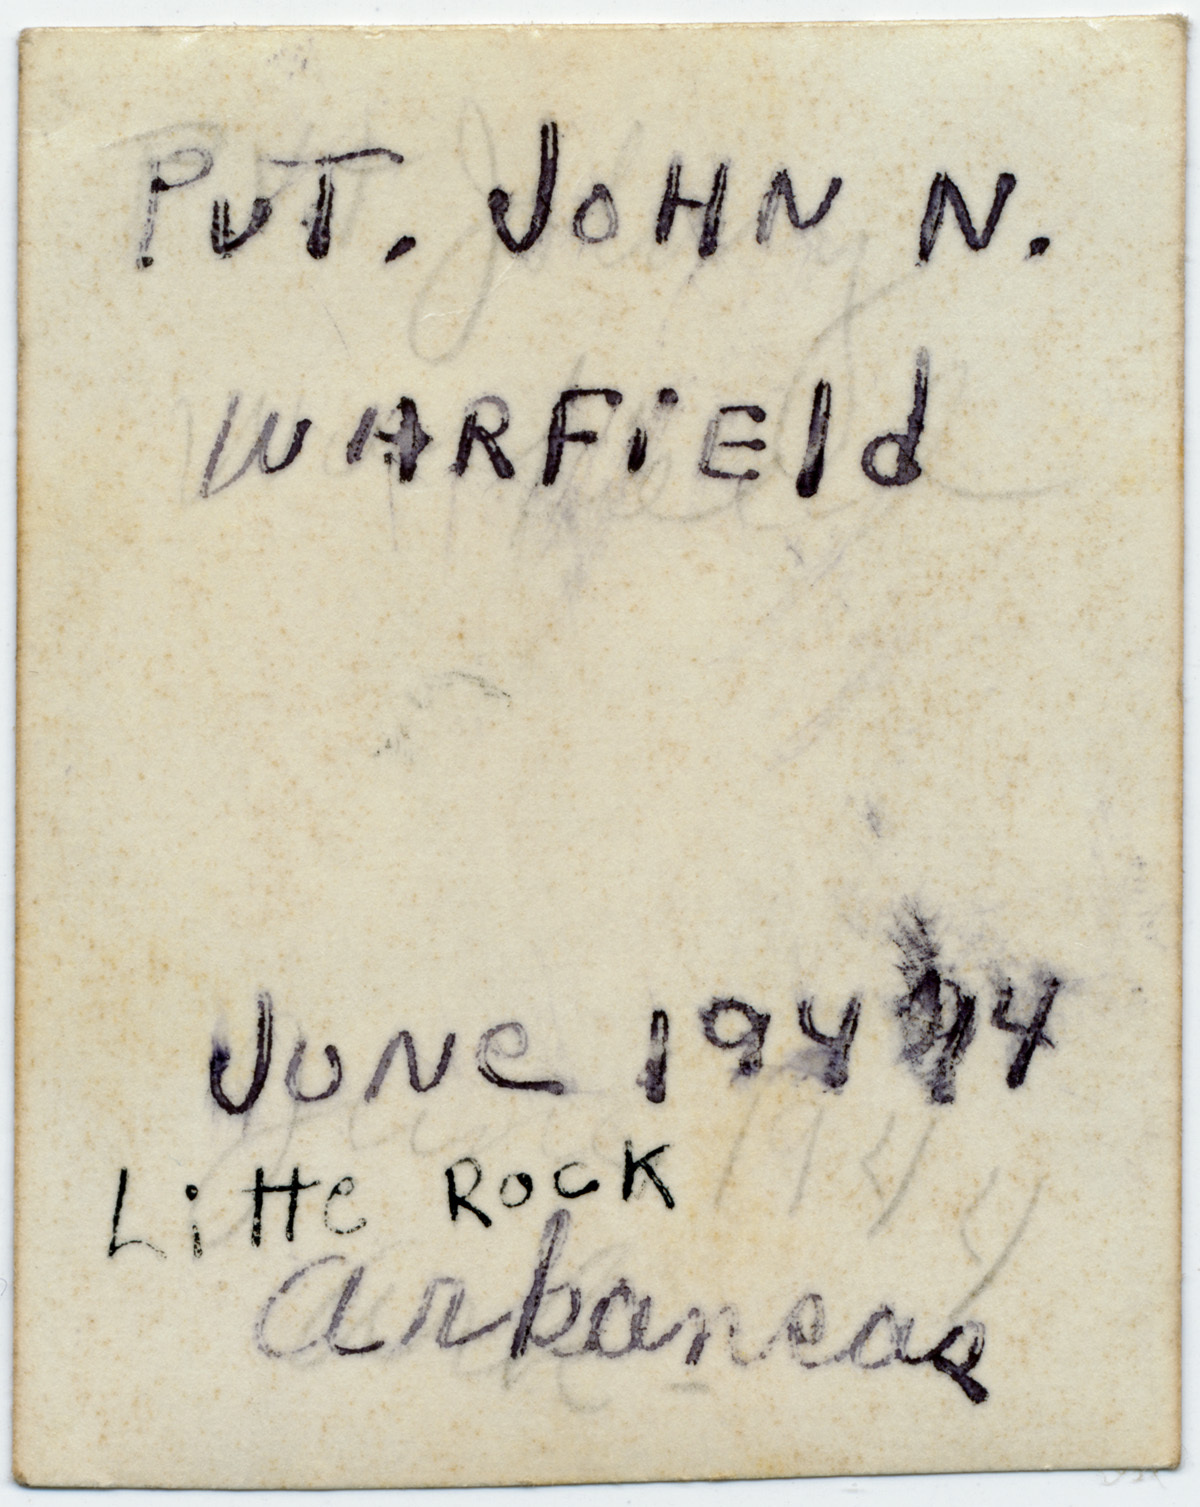 PvT. JOHN N.
WARFiEld
JUNe 1944
Litte ROCK
arkansas